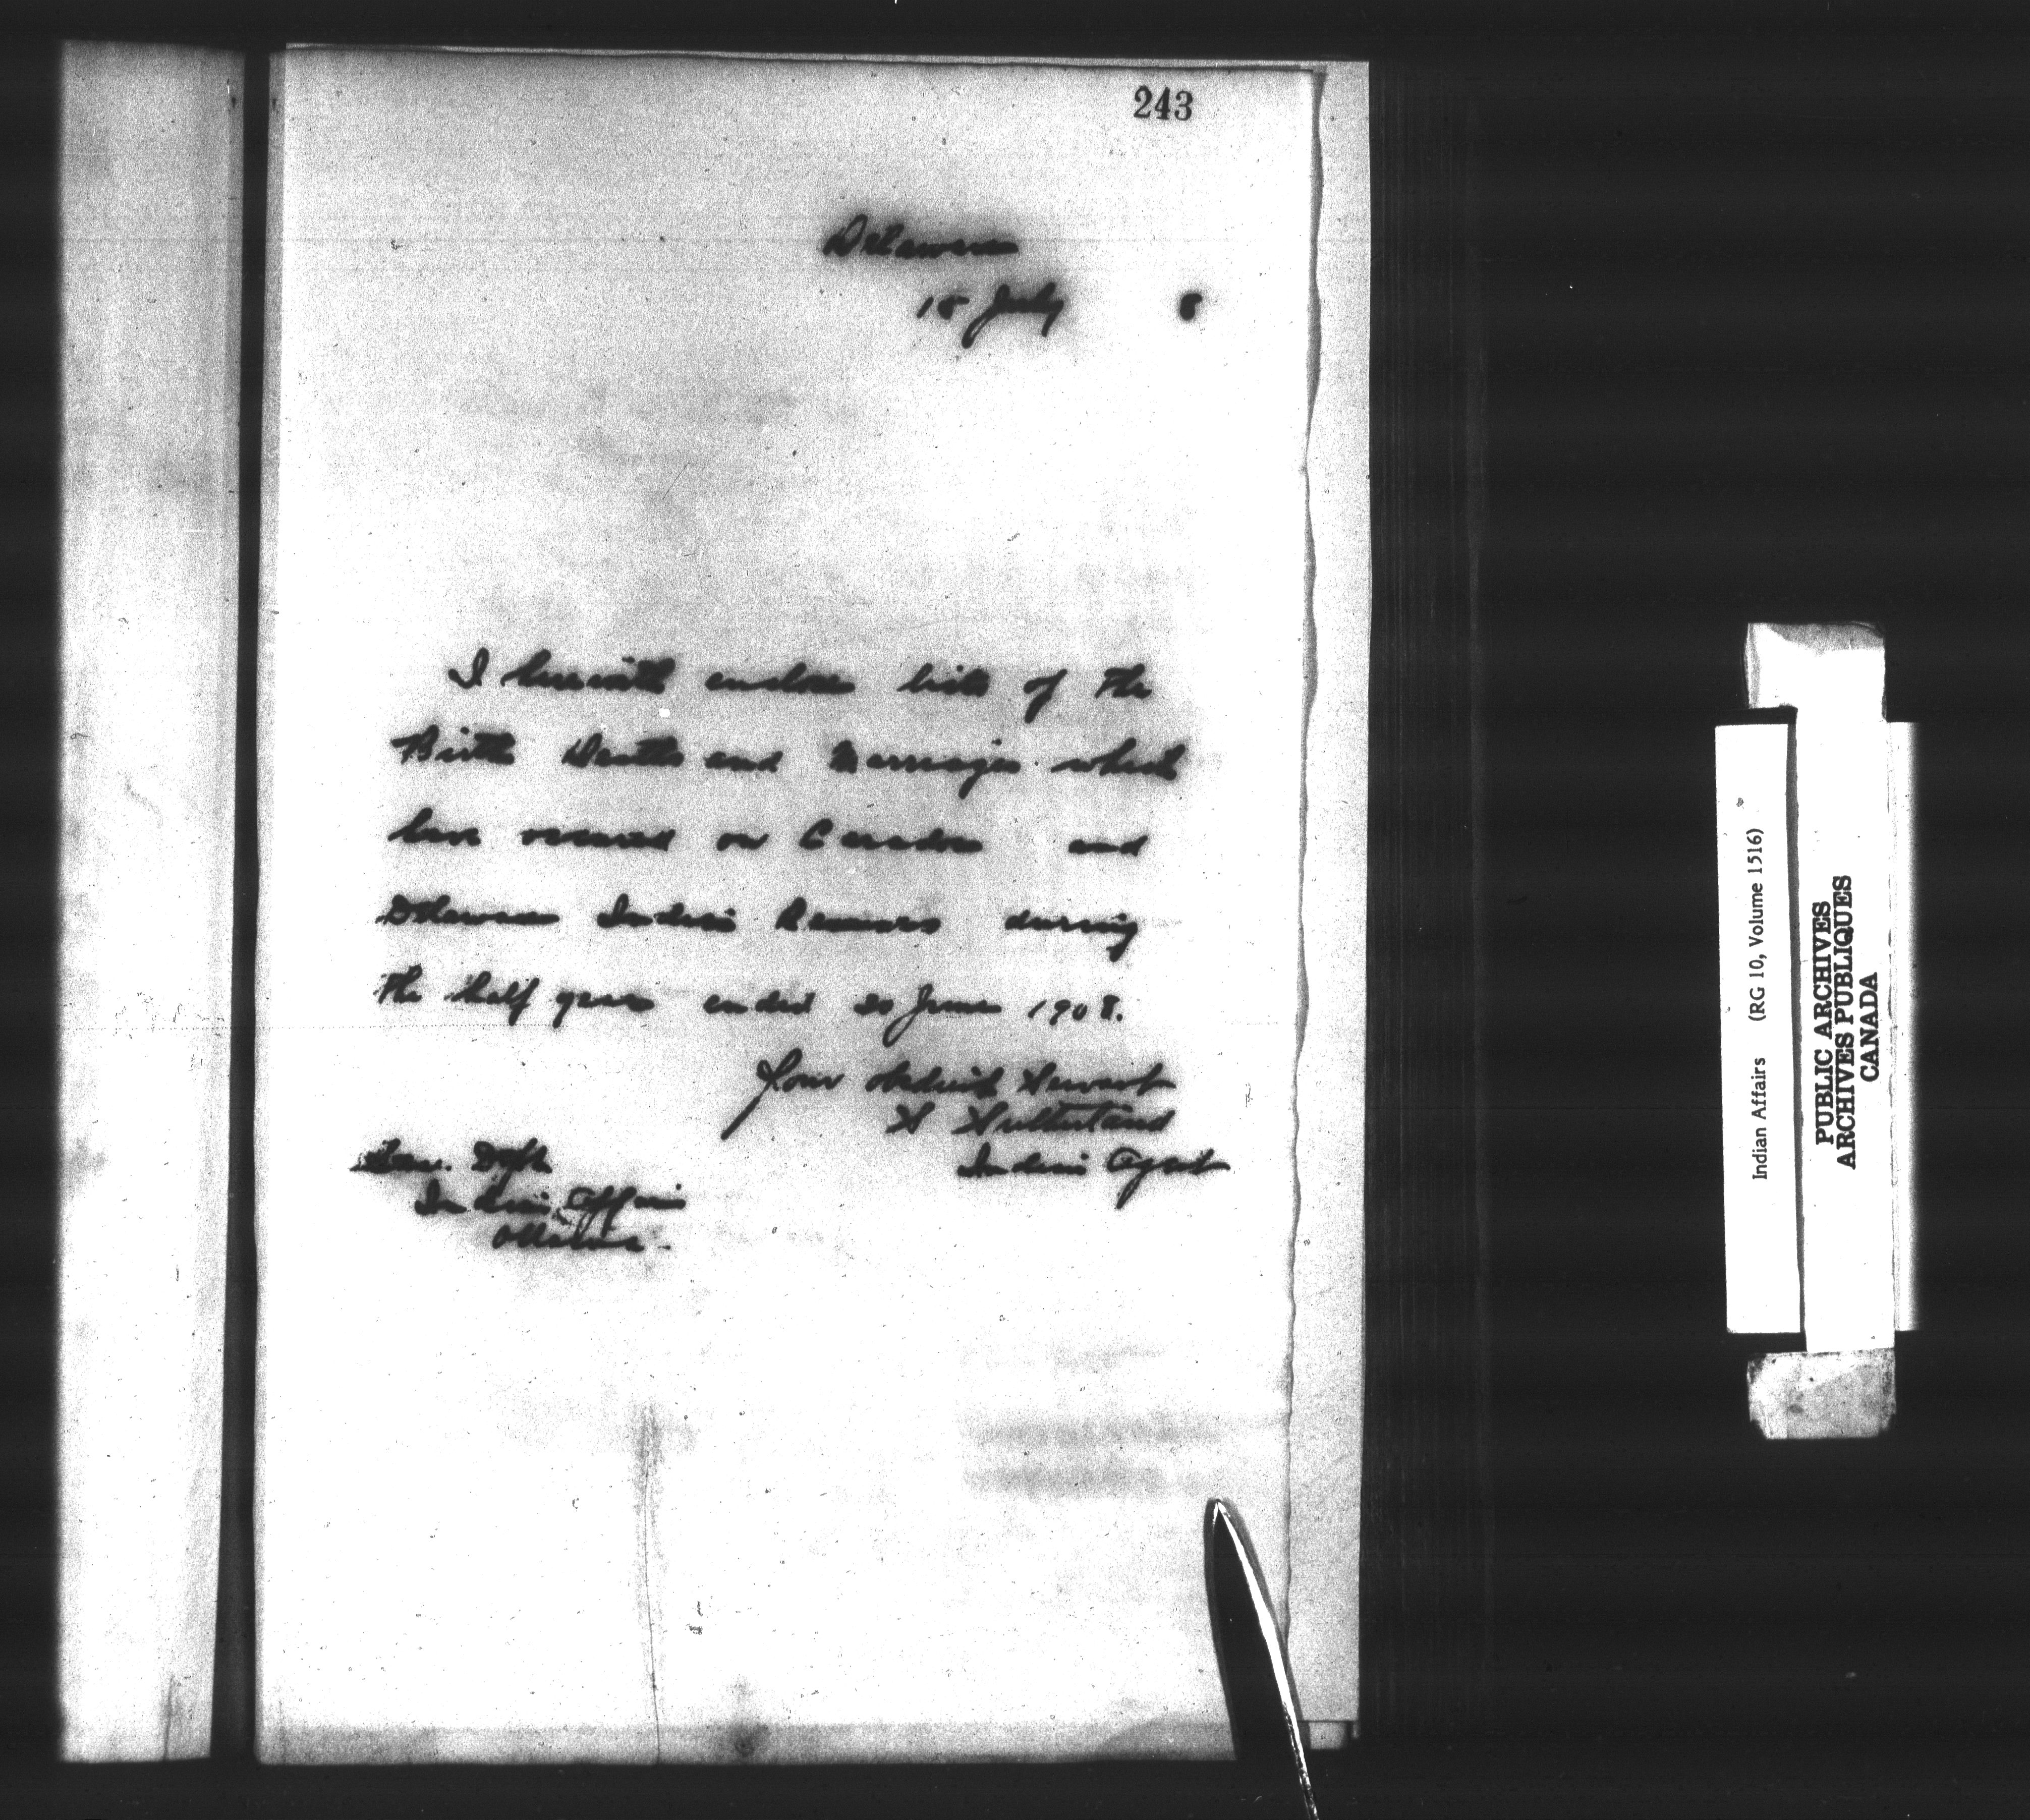 243
Delaware
15 July 8
I herewith enclose lists of the
Births Deaths and Marriages which
have occurred on Caradoc and
Delaware Indian Reserves during
the half year ended 30 June 1908.
Your obedient Servant
S Sutherland
Indian Agent
Dept
Indian Affairs
Ottawa.
Indian Affairs (RG 10, Volume 1516)
PUBLIC ARCHIVES
ARCHIVES PUBLIQUES
CANADA